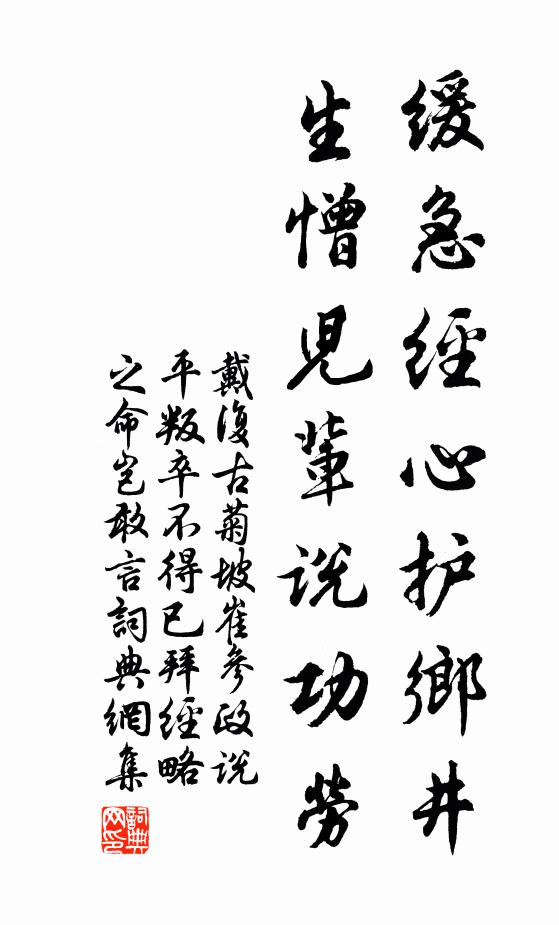 緩急經心护鄉井
生憎児輩说功勞
戴復古菊坡崔參政说
平叛卒不得已拜經略
之命岂敢言詞典網集
詞典网印